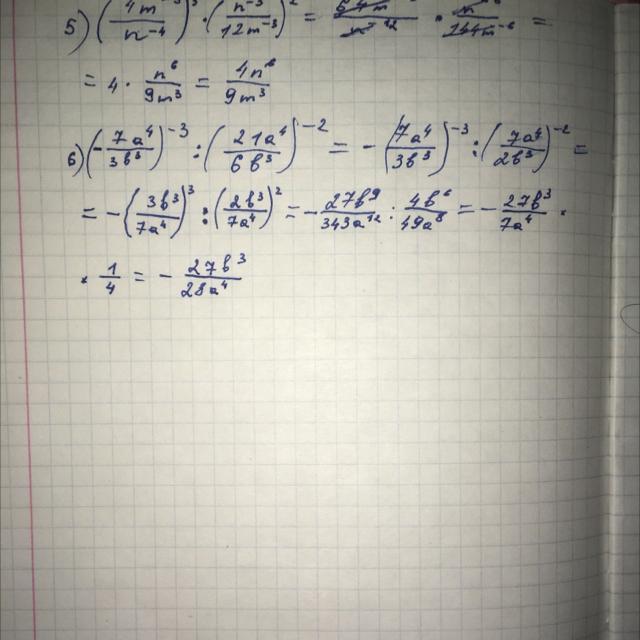 5) (4m⁻³/n⁻⁴)³ · (n⁻³/12m⁻³)² = 64m/n⁻¹² · n⁻⁶/144m⁻⁶ =
= 4 · n⁶/9m³ = 4n⁶/9m³
6) (-7a⁴/3b³)⁻³ : (21a⁴/6b³)⁻² = -(7a⁴/3b³)⁻³ : (7a⁴/2b³)⁻² =
= -(3b³/7a⁴)³ : (2b³/7a⁴)² = -27b⁹/343a¹² : 4b⁶/49a⁸ = -27b³/7a⁴ ·
· 1/4 = -27b³/28a⁴